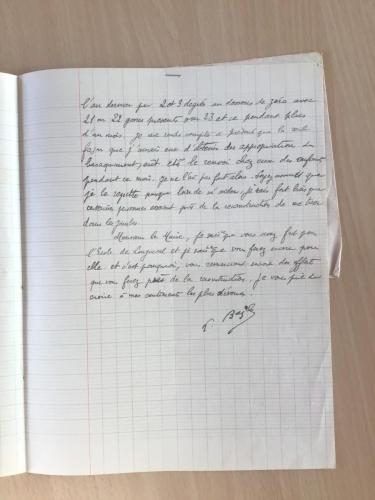 l'an dernier par 2 et 3 degrés au dessous de zéro avec
21 ou 22 gosses présents sur 33 et ce pendant plus
d'un mois. Je me rends compte à présent que la seule
façon que j'aurais eue d'obtenir des appropriations du
baraquement, eût été le renvoi chez eux des enfants
pendant ce mois. Je ne l'ai pas fait alors. Soyez assuré que
je le regrette puisque loin de m'aider, je sais fort bien que
certaines personnes essaient près de la reconstruction de me tirer
dans les jambes.
Monsieur le Maire, je sais que vous avez fait pour
l'Ecole de et je sais que vous ferez encore pour
elle et c'est pourquoi, vous remerciant encore des efforts
que vous ferez près de la reconstruction, je vous prie de
croire à mes sentiments les plus dévoués.